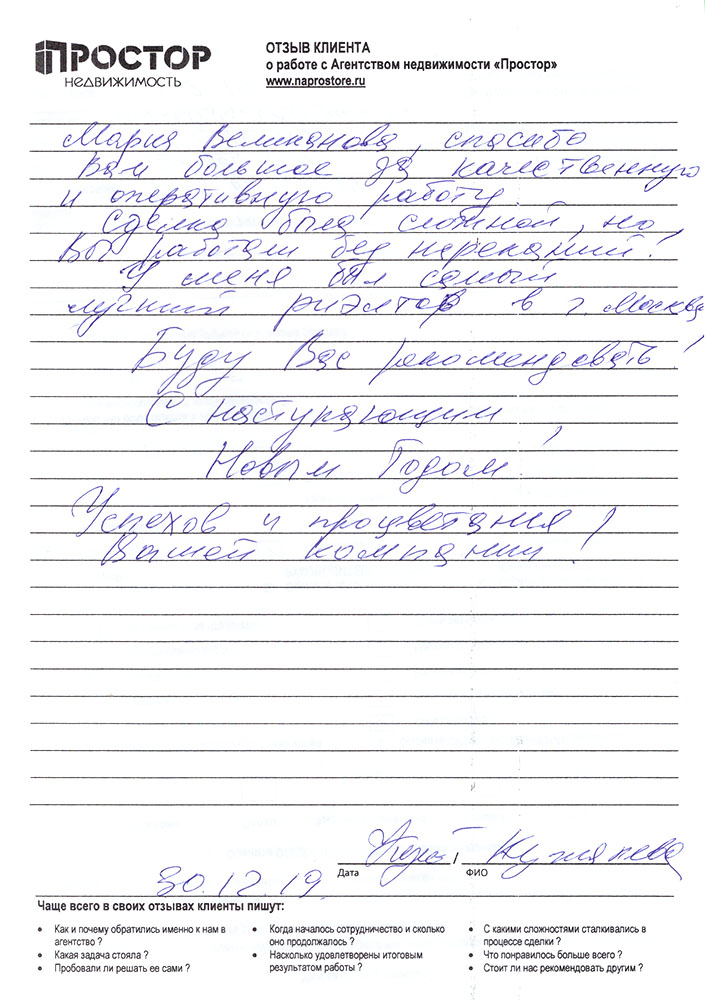 ПРОСТОР
НЕДВИЖИМОСТЬ
ОТЗЫВ КЛИЕНТА
о работе с Агентством недвижимости «Простор»
www.naprostore.ru
Мария Великанова, спасибо
Вам большое за качественную
и оперативную работу.
Сделка была сложной, но
Вы работали без нареканий!
У меня был самый
лучший риэлтор в г. Москва
Буду Вас рекомендовать!
С наступающим
Новым Годом!
Успехов и процветания
Вашей компании!
30.12.19
Дата
/
ФИО
Чаще всего в своих отзывах клиенты пишут:
• Как и почему обратились именно к нам в
агентство ?
• Какая задача стояла ?
• Пробовали ли решать ее сами ?
• Когда началось сотрудничество и сколько
оно продолжалось ?
• Насколько удовлетворены итоговым
результатом работы ?
• С какими сложностями сталкивались в
процессе сделки ?
• Что понравилось больше всего ?
• Стоит ли нас рекомендовать другим ?